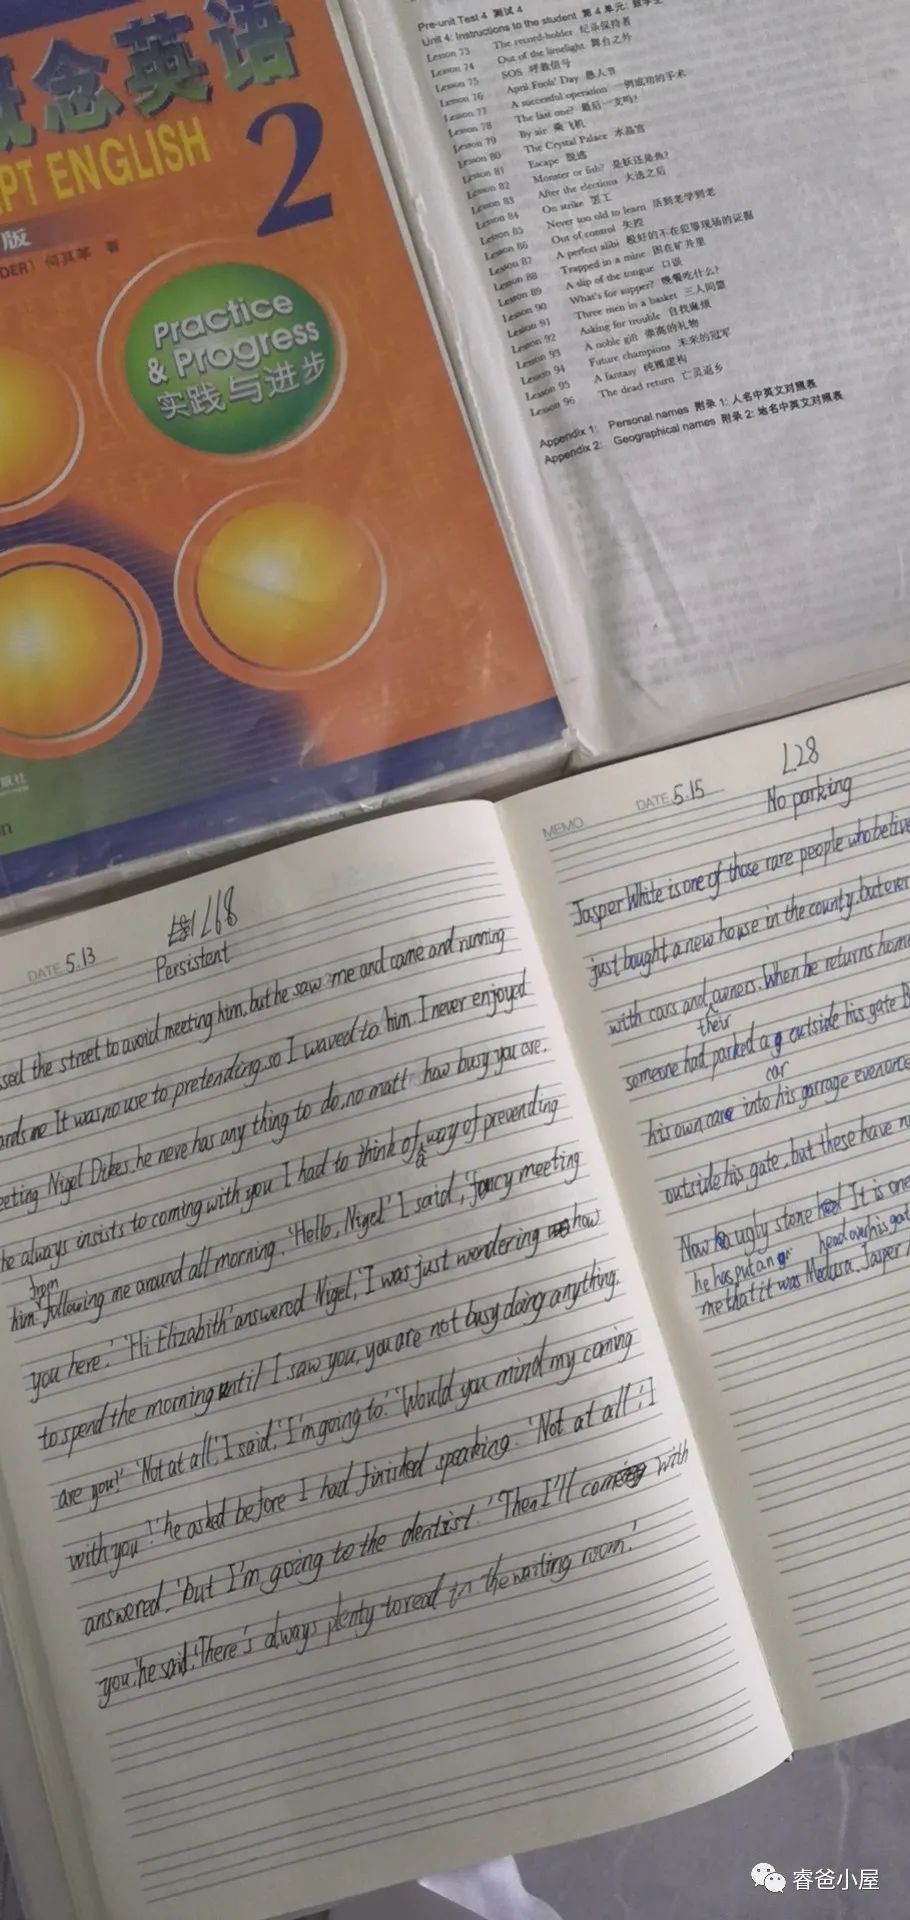 概念英语
PT ENGLISH
2
版
DER) 何其莘 著
Practice
& Progress
实践与进步
Pre-unit Test 4 测试 4
Unit 4: Instructions to the student 第 4 单元:
Lesson 73 The record-holder 纪录保持者
Lesson 74 Out of the limelight 舞台之外
Lesson 75 SOS 呼救信号
Lesson 76 April Fools' Day 愚人节
Lesson 77 A successful operation 一例成功的手术
Lesson 78 The last one? 最后一支吗?
Lesson 79 By air 乘飞机
Lesson 80 The Crystal Palace 水晶宫
Lesson 81 Escape 脱逃
Lesson 82 Monster or fish? 是妖还是鱼?
Lesson 83 After the elections 大选之后
Lesson 84 On strike 罢工
Lesson 85 Never too old to learn 活到老学到老
Lesson 86 Out of control 失控
Lesson 87 A perfect alibi 极好的不在犯罪现场的证据
Lesson 88 Trapped in a mine 困在矿井里
Lesson 89 A slip of the tongue 口误
Lesson 90 What's for supper? 晚餐吃什么?
Lesson 91 Three men in a basket 三人同篮
Lesson 92 Asking for trouble 自找麻烦
Lesson 93 A noble gift 崇高的礼物
Lesson 94 Future champions 未来的冠军
Lesson 95 A fantasy 纯属虚构
Lesson 96 The dead return 亡灵返乡
Appendix 1: Personal names 附录 1: 人名中英文对照表
Appendix 2: Geographical names 附录 2: 地名中英文对照表
L68
DATE 5.13
Persistent
ssed the street to avoid meeting him, but he saw me and came and running
ards me It was no use to pretending, so I waved to him. I never enjoyed
eeting Nigel Dikes. he neve has any thing to do, no matt how busy you are.
he always insists to coming with you I had to think of a way of prevending
him from following me around all morning. 'Hello, Nigel' I said, 'fancy meeting
you here.' 'Hi Elizabith' answered Nigel, 'I was just wondering how
to spend the morning until I saw you, you are not busy doing anything.
are you?' 'Not at all,' I said, 'I'm going to.' 'Would you mind my coming
with you?' he asked before I had finished speaking. 'Not at all', I
answered, 'but I'm going to the dentist.' 'Then I'll come with
you,' he said, 'There's always plenty to read in the waiting room.'
L28
MEMO DATE 5.15
No parking
Jasper White is one of those rare people who belive
just bought a new house in the county. but ever
with cars and their owners. When he returns home
someone had parked a car outside his gate B
his own care into his garrage even once
outside his gate, but these have n
Now he has put an ugly stone head over his gate It is one
me that it was Medusa. Jasper
睿爸小屋